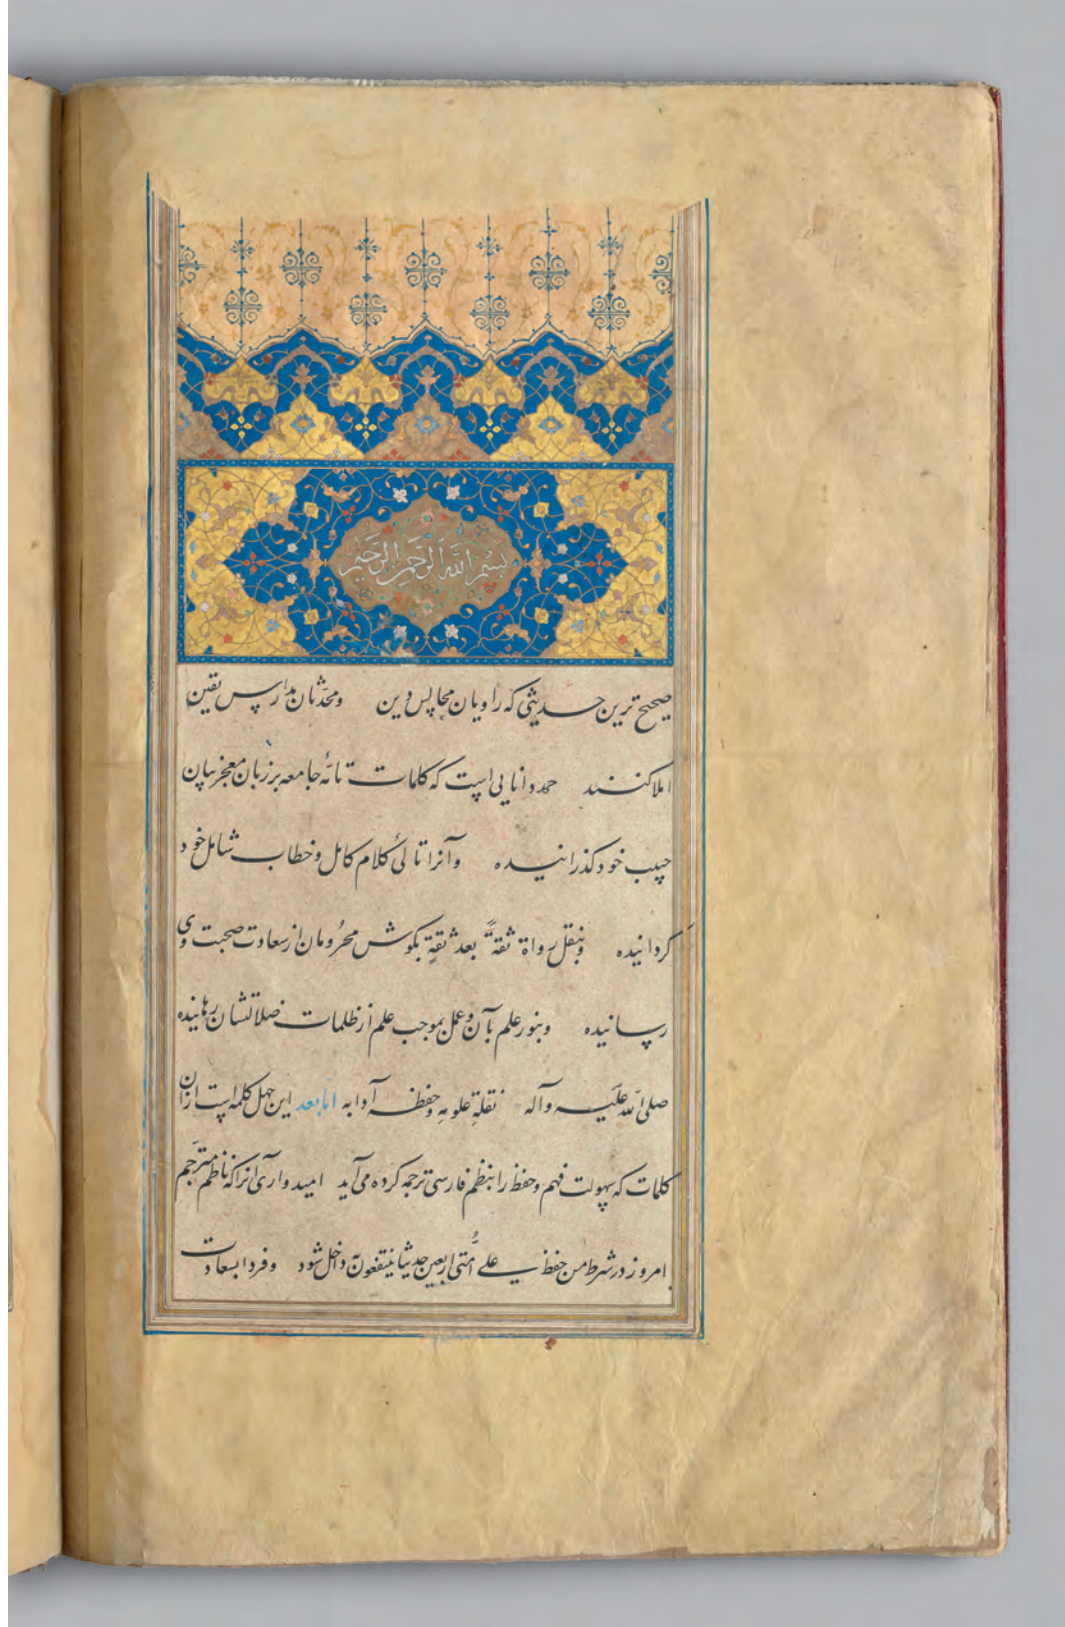 بسم الله الرحمن الرحیم
صحیح ترین حدیثی که راویان مجالس دین ومحدّثان مدارس یقین
املا کنند حمد دانایی است که کلمات تامّهٔ جامعه بر زبان معجز بیان
حبیب خود کذرانیده وآنرا تالیٔ کلام کامل وخطاب شامل خود
کردانیده وبنقل رواة ثقةً بعد ثقةٍ بکوش محرُومان از سعادت صحبت وی
رسانیده وبنور علم بآن وعمل بموجب علم از ظلمات ضلالتشان رهانیده
صلی الله علَیه وآله نقلةِ علومِهِ وحفظه آدابه اما بعد این چهل کلمه است ازان
کلمات که سهولت فهم وحفظ را بنظم فارسی ترجمه کرده می آید امیدواری آنرا که ناظم مترجم
امروز در شرط من حفظ علی اُمّتی اربعین حدیثا ینتفعون به داخل شود وفردا بسعادت